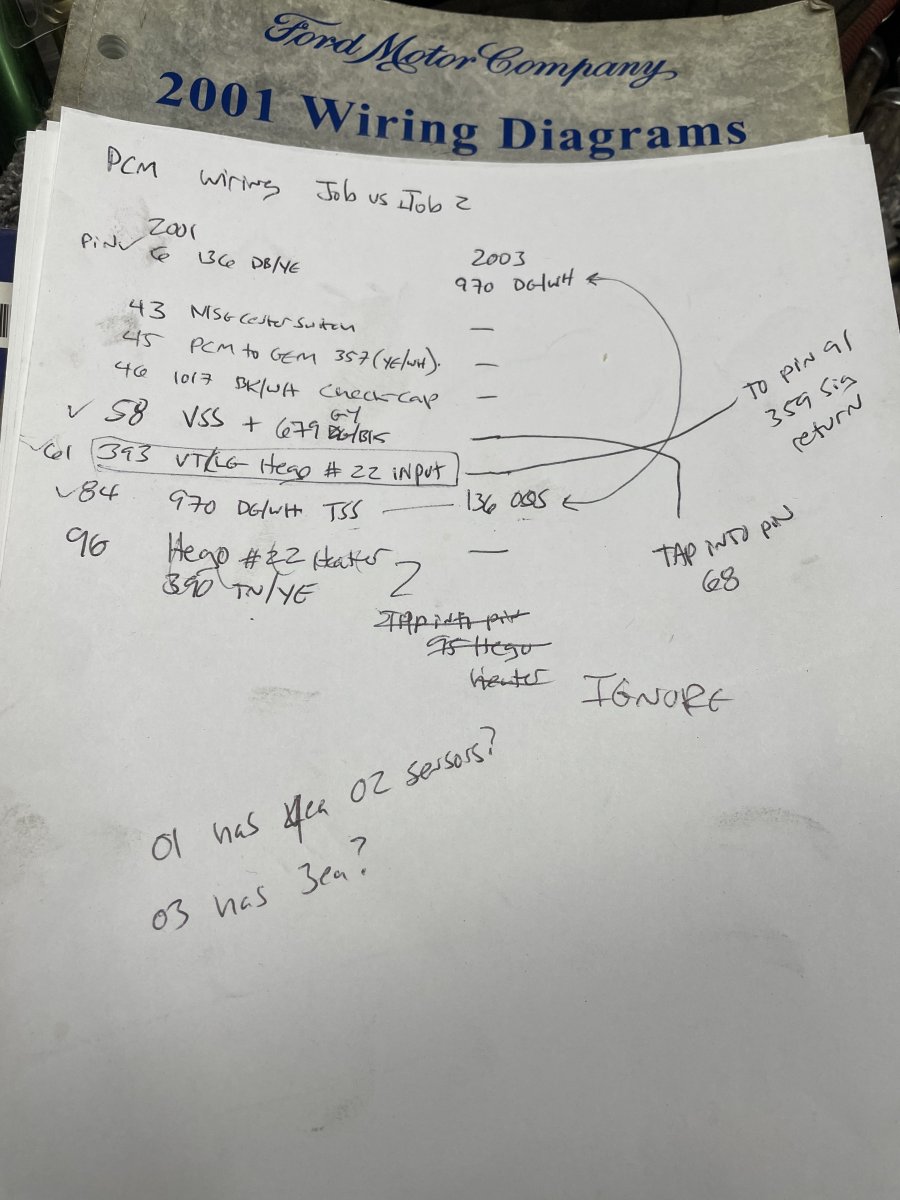 Ford Motor Company
2001 Wiring Diagrams
PCM wiring Job vs Job 2
2001
2003
PiN 6 136 DB/YE
970 DG/WH
43 —
45 PCM to GEM 357 (YE/WH). —
46 1017 BK/WH Check Cap —
58 VSS + 679 GY /BK
61 393 VT/LG Hego # 22 iNput
84 970 DG/WH TSS — 136 OSS
96 Hego #22 Heater —
390 TN/YE
TO PIN 91
359 Sig
return
TAP INTO PIN
68
TAP into pin
95 Hego
Heater
IGNORE
01 has 4ea O2 sensors?
03 has 3ea?